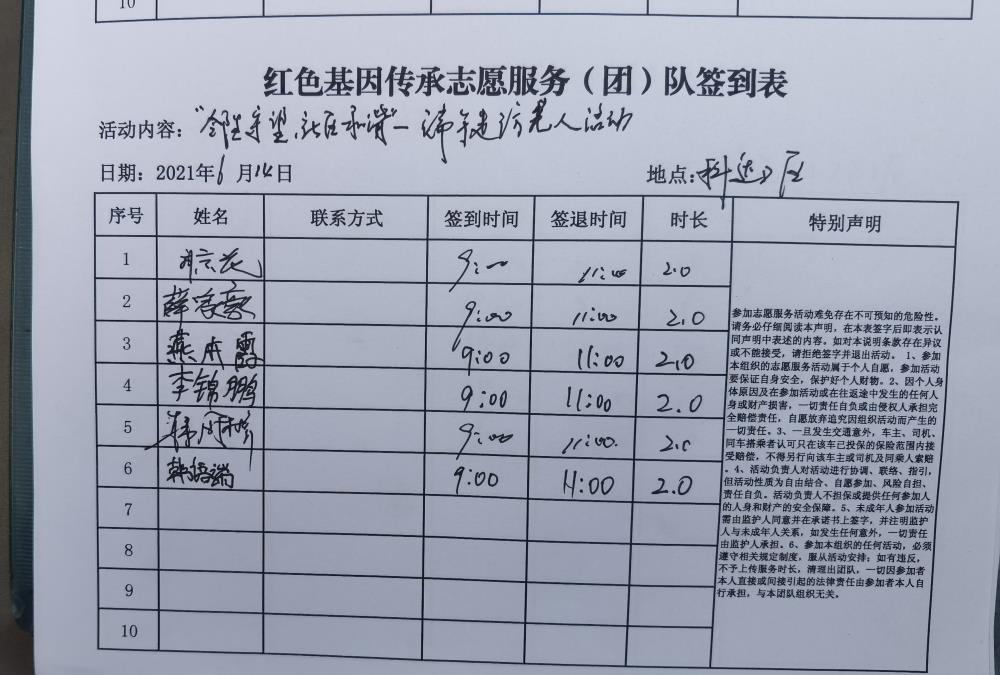 10
红色基因传承志愿服务（团）队签到表
活动内容："邻里守望,社区和谐"—端午走访老人活动
日期：2021年6月14日 地点:科达
序号 姓名 联系方式 签到时间 签退时间 时长 特别声明
1 9:00 11:00 2.0
2 薛家歌 9:00 11:00 2.0
3 燕本霞 9:00 11:00 2.0
4 李锦鹏 9:00 11:00 2.0
5 9:00 11:00. 2.0
6 韩 9:00 11:00 2.0
7
8
9
10
参加志愿服务活动难免存在不可预知的危险性。
请务必仔细阅读本声明，在本表签字后即表示认
同声明中表述的内容。如对本说明条款存在异议
或不能接受，请拒绝签字并退出活动。 1、参加
本组织的志愿服务活动属于个人自愿，参加活动
要保证自身安全，保护好个人财物。2、因个人身
体原因及在参加活动或在往返途中发生的任何人
身或财产损害，一切责任自负或由侵权人承担完
全赔偿责任，自愿放弃追究因组织活动而产生的
一切责任。3、一旦发生交通意外，车主、司机、
同车搭乘者认可只在该车已投保的保险范围内接
受赔偿，不得另行向该车主或司机及同乘人索赔
。4、活动负责人对活动进行协调、联络、指引，
但活动性质为自由结合、自愿参加、风险自担、
责任自负。活动负责人不担保或提供任何参加人
的人身和财产的安全保障。5、未成年人参加活动
需由监护人同意并在承诺书上签字，并注明监护
人与未成年人关系，如发生任何意外，一切责任
由监护人承担。6、参加本组织的任何活动，必须
遵守相关规定制度，服从活动安排；如有违反，
不予上传服务时长，清理出团队，一切因参加者
本人直接或间接引起的法律责任由参加者本人自
行承担，与本团队组织无关。